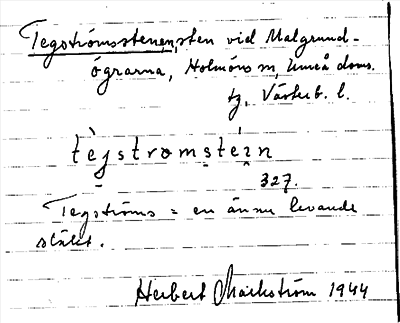 Tegströmsstenen, sten vid Malgrund-
ögrarna, Holmöns sn, Umeå doms.
tg, Västerb. l.
tèjstromsteín
327.
Tegströms = en ännu levande
släkt.
Herbert Markström 1944